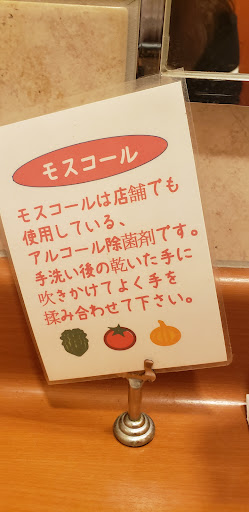 モスコール
モスコールは店舗でも
使用している、
アルコール除菌剤です。
手洗い後の乾いた手に
吹きかけてよく手を
揉み合わせて下さい。